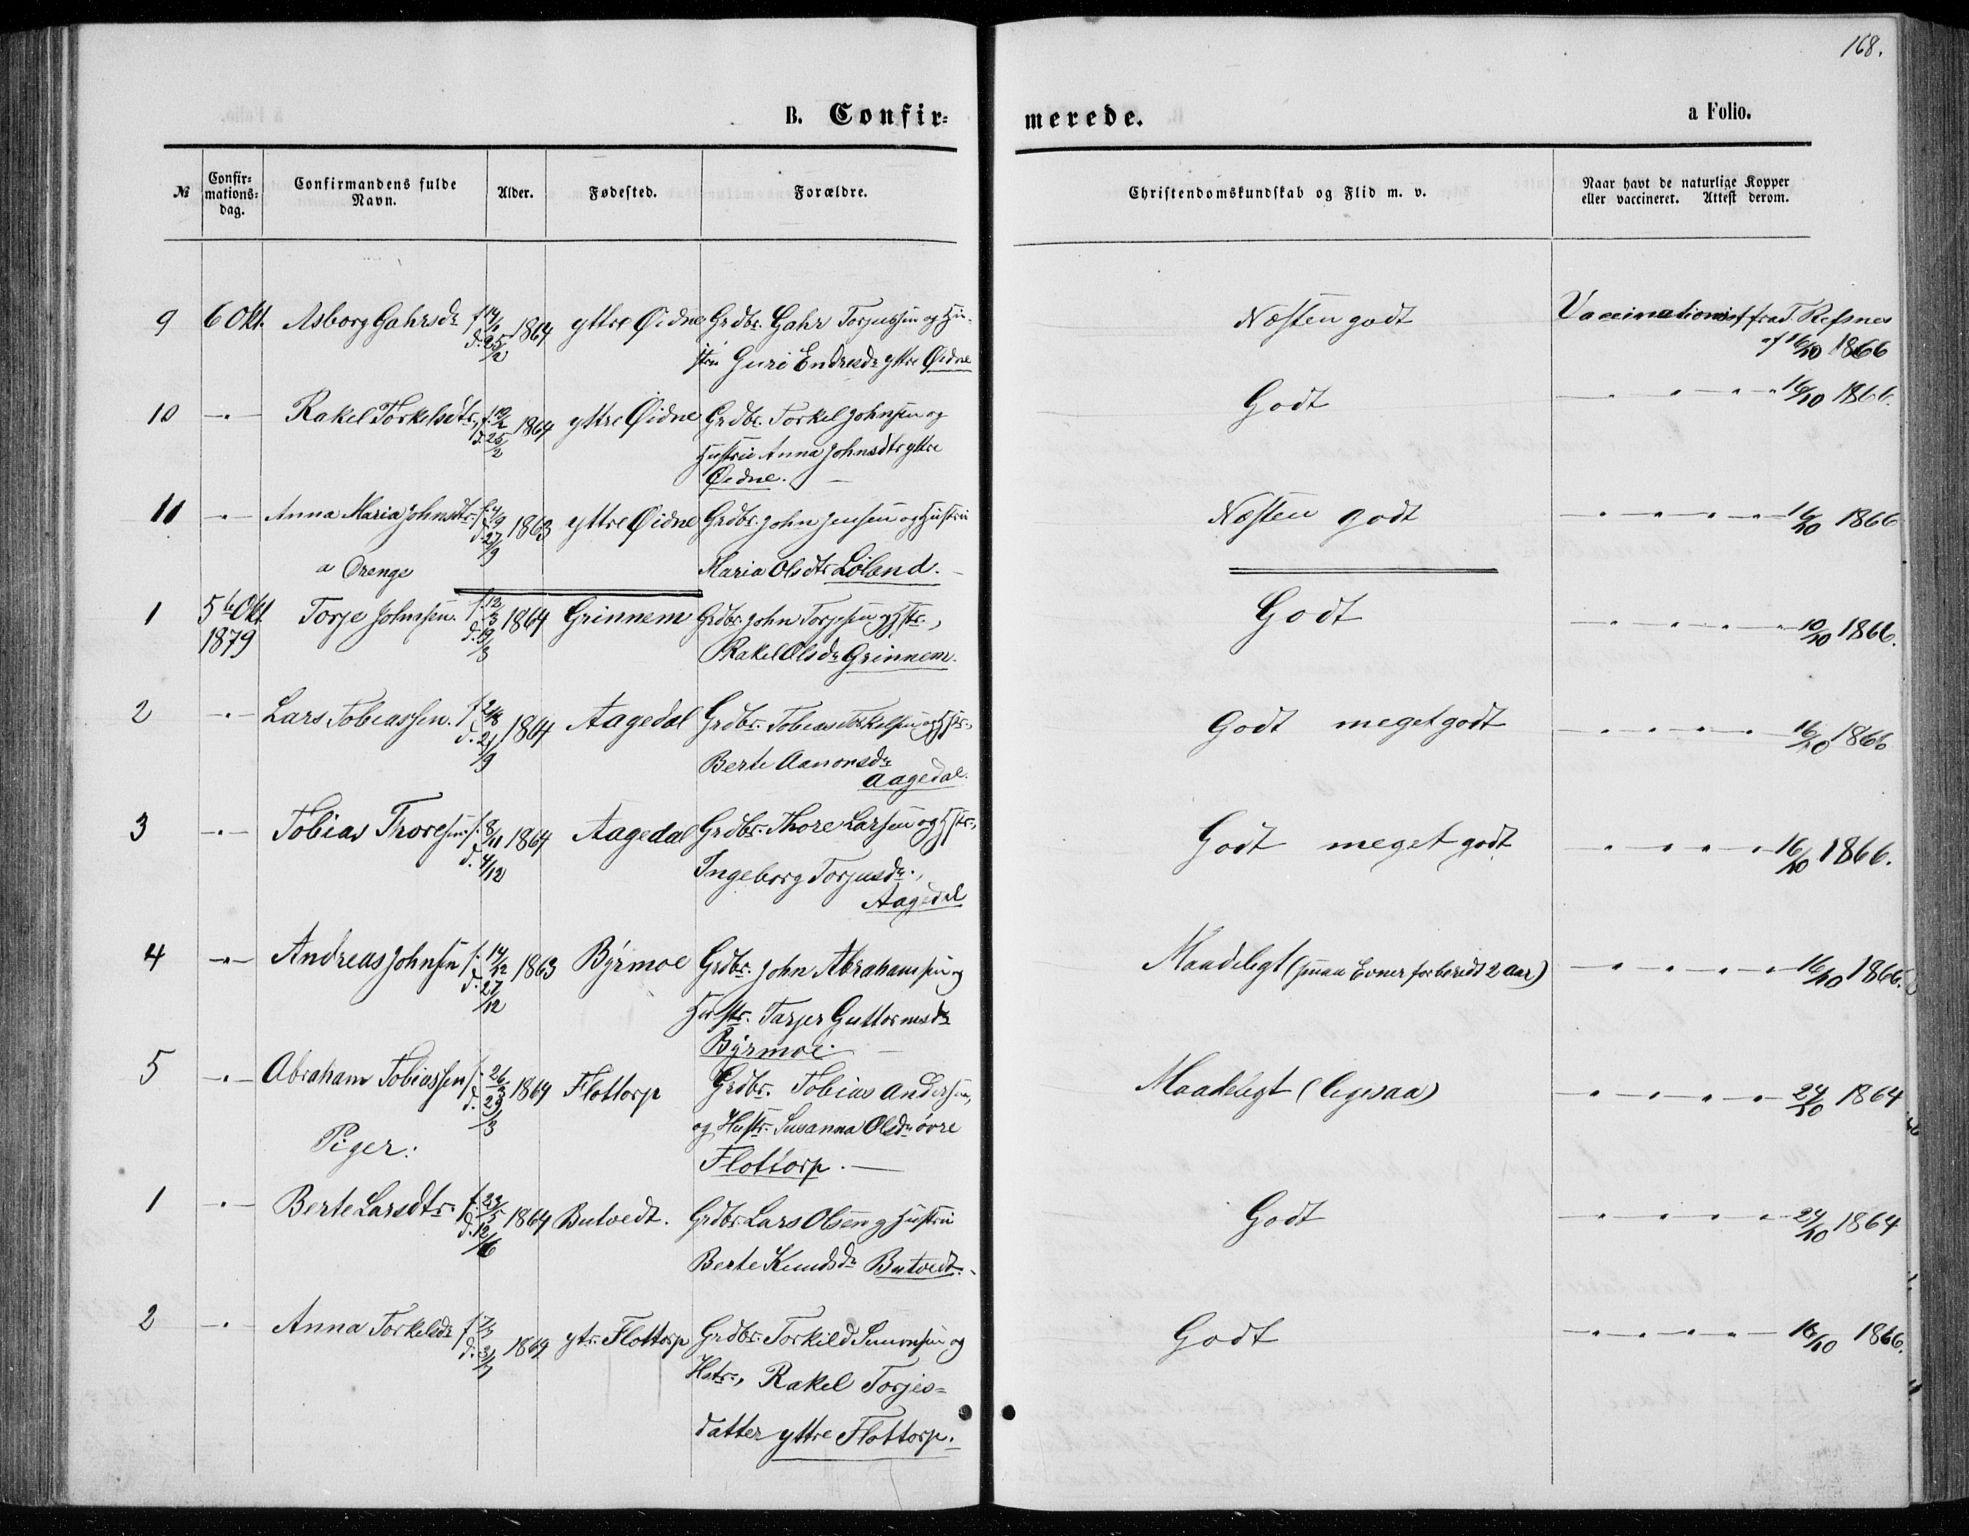 168.
B. Confirmerede. a Folio.
№ Confirmationsdag. Confirmandens fulde Navn. Alder. Fødested. Forældre. Christendomskundskab og Flid m. v. Naar havt de naturlige Kopper eller vaccineret. Attest derom.
9 6 Okt. Asborg Gahrsdr f. 14/1 1864 yttre Øidne Grdbr. Gahr Torjussen og Hu- Næsten godt Vaccinationist fra T. Refsnes
d. 25/2 stru Guri Endresdr yttre Øidne af 16/10 1866
10 -"- Rakel Torkelsdtr f. 12/2 1864 yttre Øidne Grdbr. Torkel Johnsen og Godt " " " " 16/10 1866.
d. 25/2 Hustru Anna Johnsdtr yttre
Øidne.
11 -"- Anna Maria Johnsdtr f. 4/9 1863 yttre Øidne Grdbr. John Jensen og Hustru Næsten godt " " " " 16/10 1866
d. 27/9 Maria Olsdtr Løland.
a Drenge
1 5te Okt. 1879 Torje Johnsen f. 12/3 1864 Grinnem Grdbr. John Torjesen og Hstr., Godt " " " " 10/10 1866.
d. 19/3 Rakel Olsdr Grinnem.
2 -"- Lars Tobiassen. f. 2/8 1864 Aagedal Grdbr. Tobias Torkelsen og Hstr., Godt meget godt " " " " 16/10 1866
d. 21/9 Berte Aanonsdr
Aagedal.
3 -"- Tobias Thoresen f. 8/11 1864 Aagedal Grdbr. Thore Larsen og Hstr., Godt meget godt " " " " 16/10 1866.
d. 4/12 Ingeborg Torjusdr.,
Aagedal
4 -"- Andreas Johnsen f. 14/12 1863 Byrmoe Grdbr. John Abrahamsen og Maadeligt (smaa Evner forberedt 2 Aar) " " " " 16/10 1866.
d. 27/12 Hustr. Tarjer Guttormsdr
Byrmoe.
5 -"- Abraham Tobiassen f. 26/2 1864 Flottorp Grdbr. Tobias Andersen, Maadeligt (ligesaa) " " " " 24/10 1864
d. 29/3 og Hustr. Susanna Olsdr øvre
Piger: Flottorp.
1 -"- Berte Larsdtr. f. 23/5 1864 Butvedt. Grdbr. Lars Olsen og Hustru Godt " " " " 24/10 1864
d. 12/6 Berte Knudsdr Butvedt.
2 -"- Anna Torkelsdr f. 7/3 1864 ytr. Flottorp Grdbr. Torkild Simonsen og Godt " " " " 16/10 1866.
Hstr., Rakel Torjes-
datter yttre Flottorp.